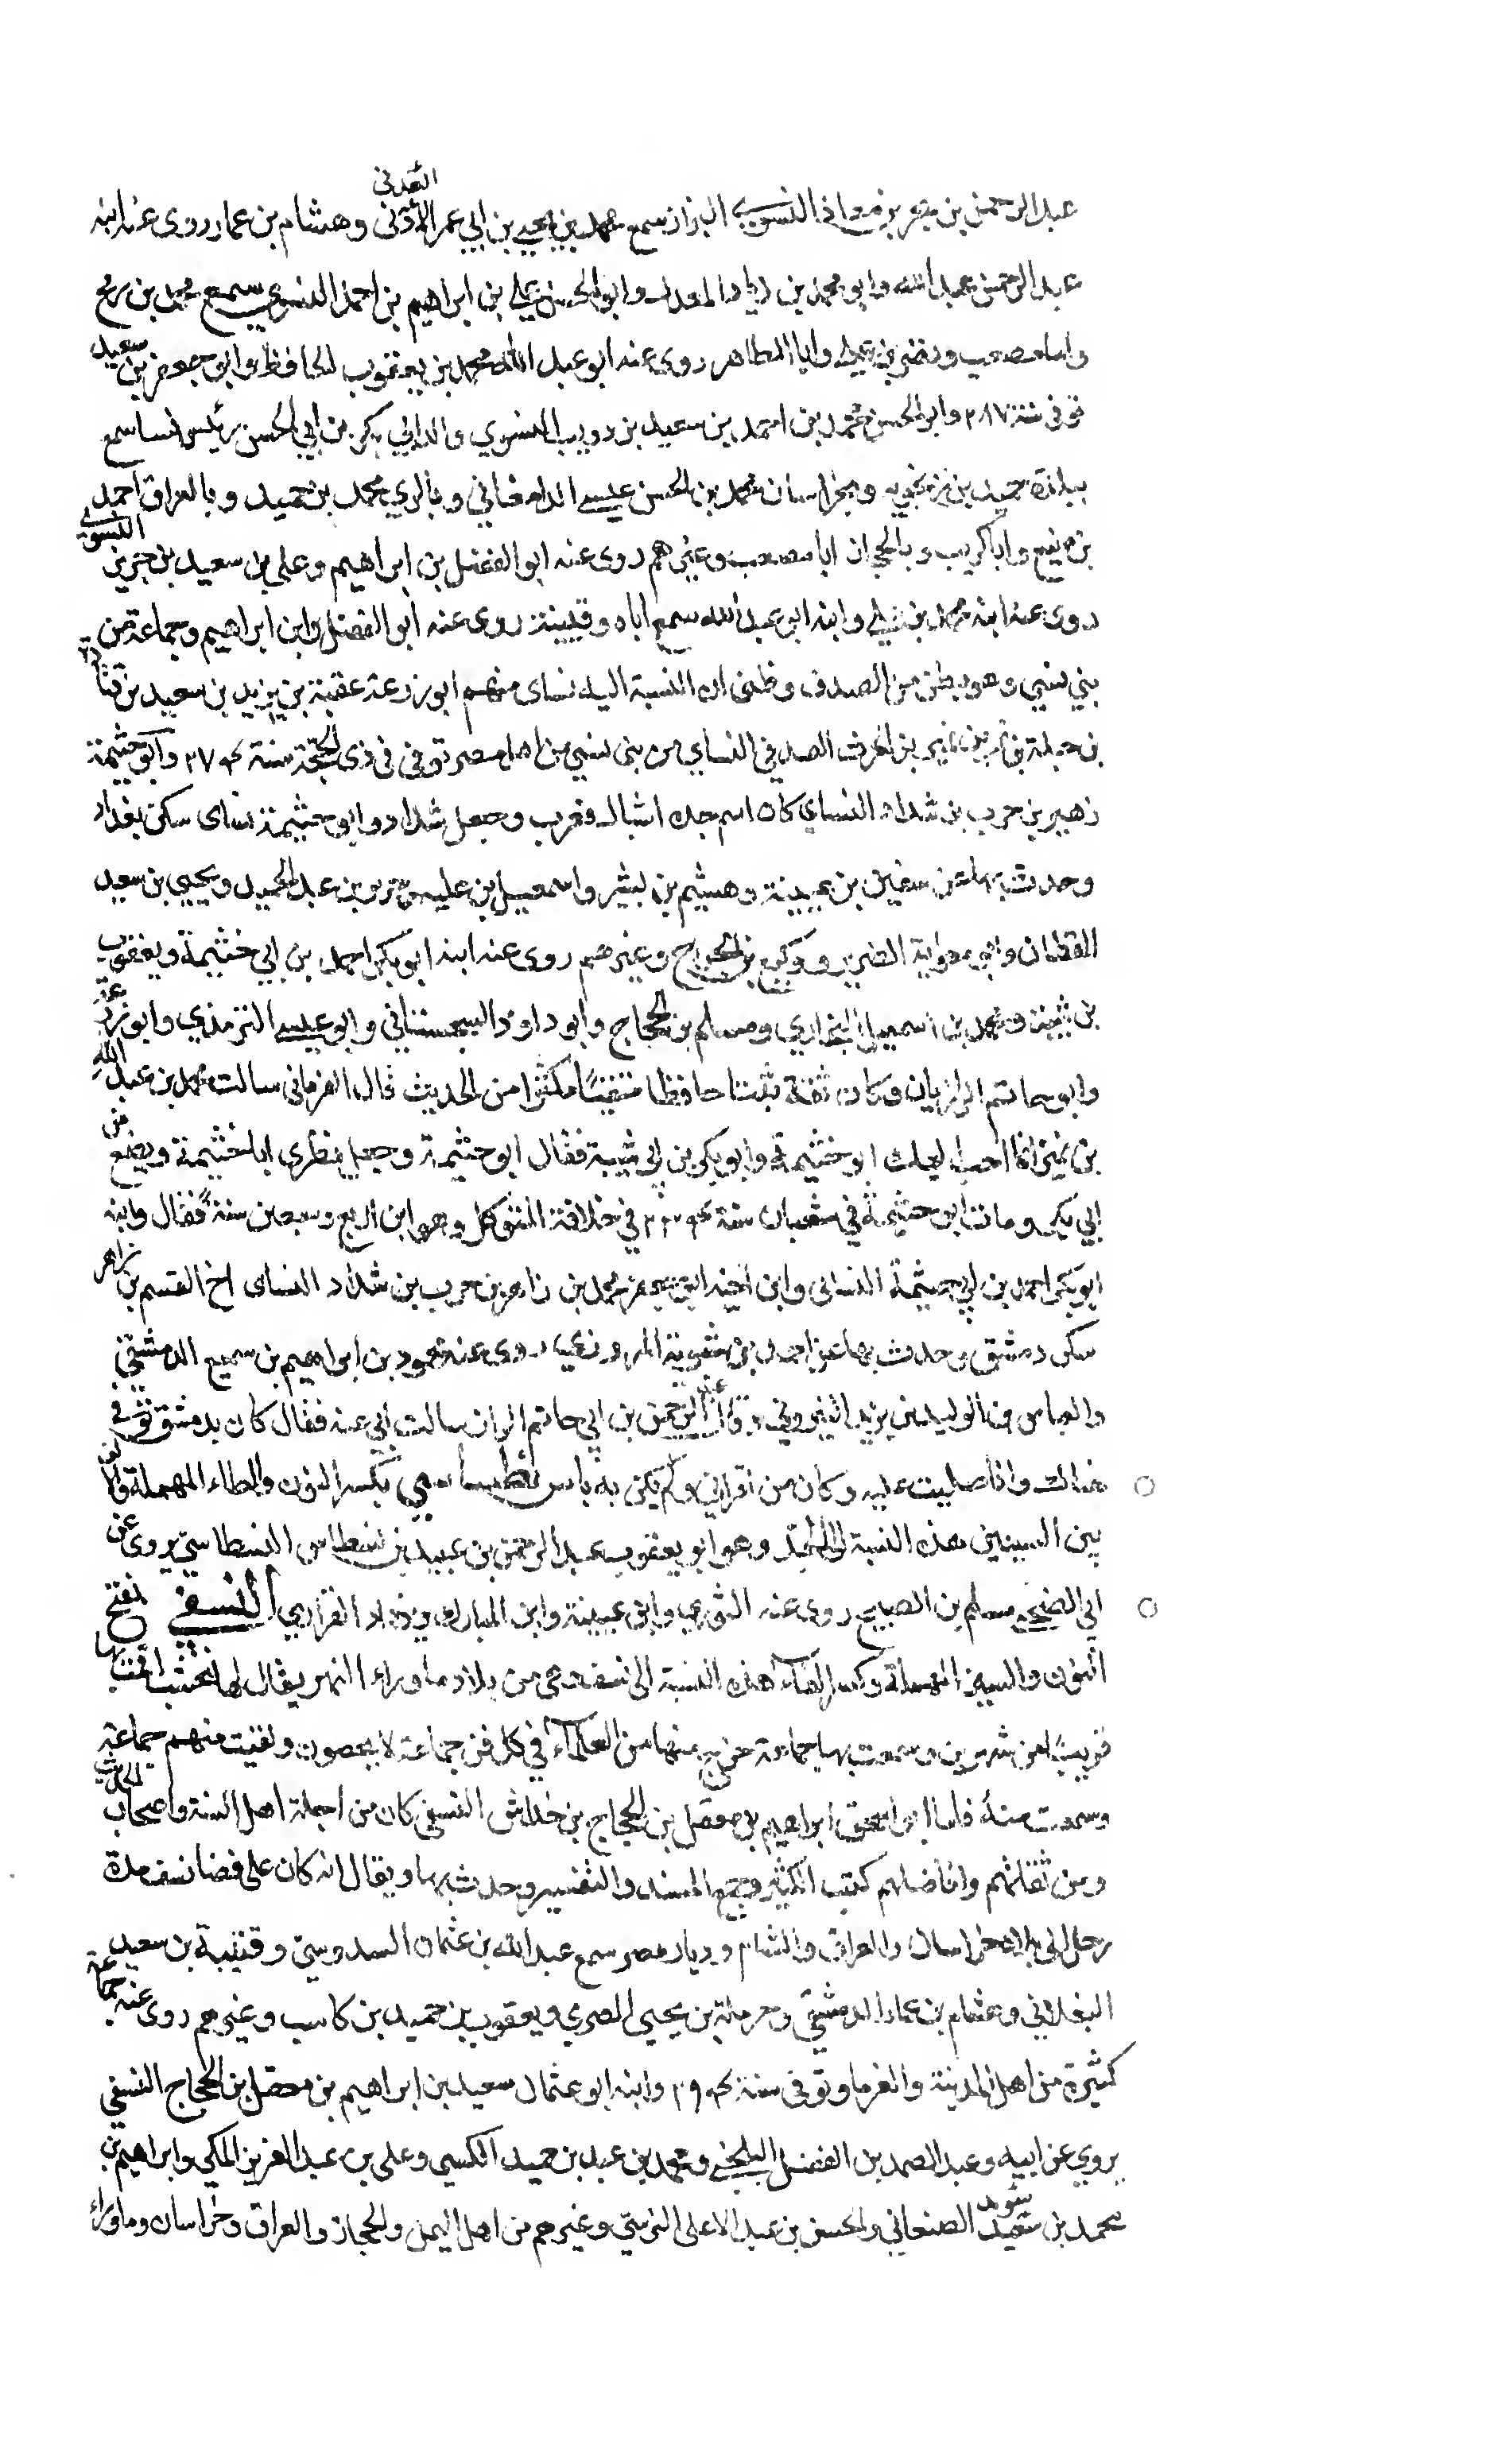 عبد الرحمن بن بحر بن معاذ النسوي البزاز سمع محمد بن يحيى بن ابي عمر العدني وهشام بن عمار روى عنه ابنه
عبد الرحمن عبد الله وابو محمد بن زياد المعدل وابو الحسن علي بن ابراهيم بن احمد النسوي سمع محمد بن رمح
وابا مصعب ونصر بن علي وابا الطاهر روى عنه ابو عبد الله محمد بن يعقوب الحافظ وابو جعفر بن سعيد
توفي سنة ٢٨٧ وابو الحسن محمد بن احمد بن سعيد بن دويب النسوي والد ابي بكر بن ابي الحسن رئيس نسا سمع
ببلده حميد بن زنجويه وبخراسان محمد بن الحسن عيسى الدامغاني وبالري محمد بن حميد وبالعراق احمد
بن منيع وابا كريب وبالحجاز ابا مصعب وغيرهم روى عنه ابو الفضل بن ابراهيم وعلي بن سعيد بن جرير النسوي
روى عنه ابنه محمد بن علي وابنه ابو عبد الله سمع اباه وقتيبة روى عنه ابو الفضل وابن ابراهيم وجماعة من
بني نسي وهو بطن من الصدف وظني ان النسبة اليه نساى منهم ابو زرعة عقبة بن يزيد بن سعيد بن قتادة
بن حبلة بن نمير بن الحرث الصدفي النساي من بني نسي من اهل مصر توفي في ذي الحجة سنة ٢٧٤ وابو خثيمة
زهير بن حرب بن شداد النساي كان اسم جده اشتال فعرب وجعل شداد وابو خثيمة نساى سكن بغداد
وحدث بها عن سفين بن عيينة وهشيم بن بشير واسمعيل بن علية وجرير بن عبد الحميد ويحيى بن سعيد
القطان وابي معوية الضرير ووكيع بن الجراح وغيرهم روى عنه ابنه ابو بكر احمد بن ابي خثيمة ويعقوب
بن شيبة ومحمد بن اسمعيل البخاري ومسلم بن الحجاج وابو داود السجستاني وابو عيسى الترمذي وابو زرعة
وابو حاتم الرازيان وكان ثقة ثبتا حافظا متقنا مكثرا من الحديث قال الفرماني سالت محمد بن عبد الله
بن نمير ايما احب اليك ابو خثيمة وابو بكر بن ابي شيبة فقال ابو خثيمة وجعل يطري ابا خثيمة ويضع من
ابي بكر ومات ابو خثيمة في شعبان سنة ٢٣٤ في خلافة المتوكل وهو ابن اربع وسبعين سنة فقال وابنه
ابو بكر احمد بن ابي خثيمة النساى وابن اخيه ابو جعفر محمد بن زاهر بن حرب بن شداد النساى اخ القسم بن زاهر
سكن دمشق وحدث بها عن احمد بن شبوية المروزي روى عنه محمود بن ابراهيم بن سميع الدمشقي
والعباس بن الوليد بن يزيد البيروتي وقال عبد الرحمن بن ابي حاتم الراز سالت ابي عنه فقال كان بدمشق توفي
هنالك وانا صليت عليه وكان من اقراني ولم يكن به باس نسطاسي بكسر النون والطاء المهملة والالف
بين السينين هذه النسبة الى الجد وهو ابو يعقوب عبد الرحمن بن عبيد بن نسطاس النسطاسي يروي عن
ابي الضحى مسلم بن الصبيح روى عنه الثوري وابن عيينة وابن المبارك وذواد الفزاري النسفي بفتح
النون والسين المهملة وكسر الفاء هذه النسبة الى نسف وهي من بلاد ماوراء النهر يقال لها نخشب اقمت بها
قريبا من شهرين وسمعت بها جماعة خرج منها من العلماء في كل فن جماعة لا يحصون ولقيت منهم جماعة
وسمعت منهم فاما ابو اسحق ابراهيم بن معقل بن الحجاج بن خداش النسفي كان من اجملة اهل السنة واصحاب الحديث
ومن ثقاتهم وافاضلهم كتب الكثير وجمع المسند والتفسير وحدث بها ويقال انه كان على قضا نسف مدة
رحل الى بلاد خراسان والعراق والشام وديار مصر سمع عبد الله بن عثمان السدوسي وقتيبة بن سعيد
البغلاني وهشام بن عمار الدمشقي وحرملة بن يحيى المصري ويعقوب بن حميد بن كاسب وغيرهم روى عنه جماعة
كثيرة من اهل المدينة والغرما وتوفي سنة ٢٩٤ وابنه ابو عثمان سعيد بن ابراهيم بن معقل بن الحجاج النسفي
يروي عن ابيه وعبد الصمد بن الفضل البلخي ومحمد بن عبد بن حميد الكسي وعلي بن عبد العزيز المكي وابراهيم بن
محمد بن سويد الصنعاني والحسن بن عبد الاعلى النرسي وغيرهم من اهل اليمن والحجاز والعراق وخراسان وماوراء